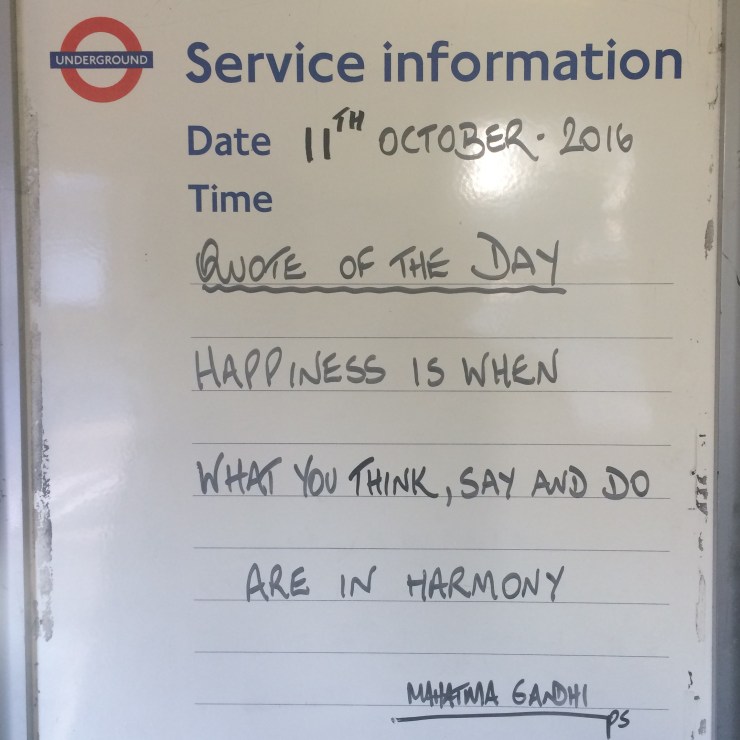 UNDERGROUND
Service information
Date 11TH OCTOBER · 2016
Time
QUOTE OF THE DAY
HAPPINESS IS WHEN
WHAT YOU THINK, SAY AND DO
ARE IN HARMONY
MAHATMA GANDHI
PS